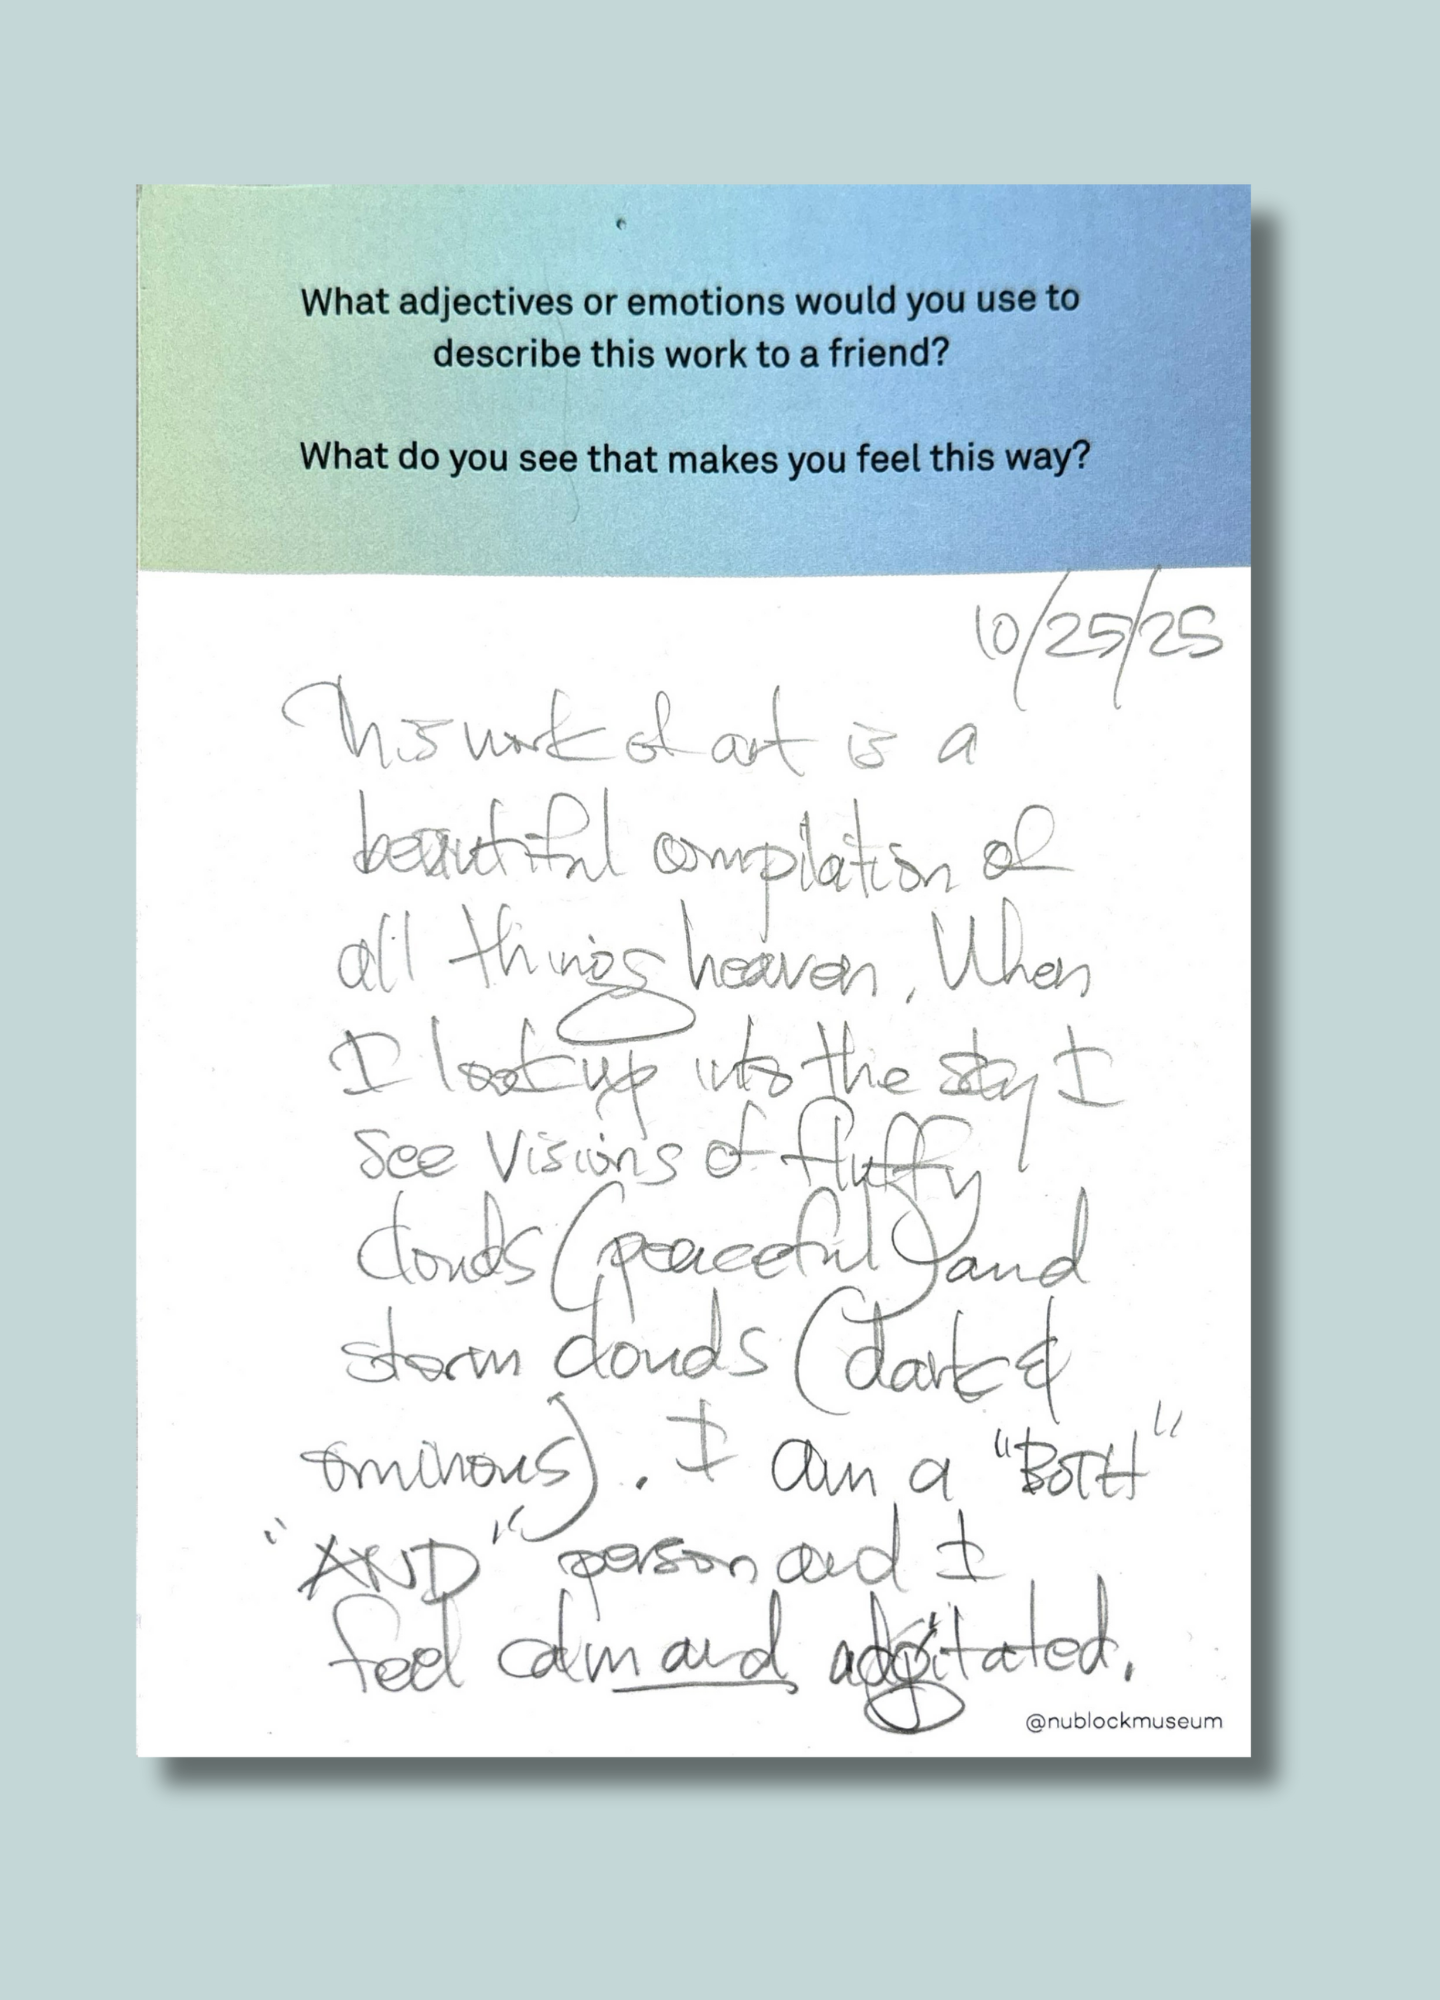 What adjectives or emotions would you use to
describe this work to a friend?
What do you see that makes you feel this way?
10/25/25
This work of art is a
beautiful compilation of
all things heaven. When
I look up into the sky I
see visions of fluffy
clouds (peaceful) and
storm clouds (dark &
ominous). I am a "BOTH"
"AND" person and I
feel calm and agitated.
@nublockmuseum